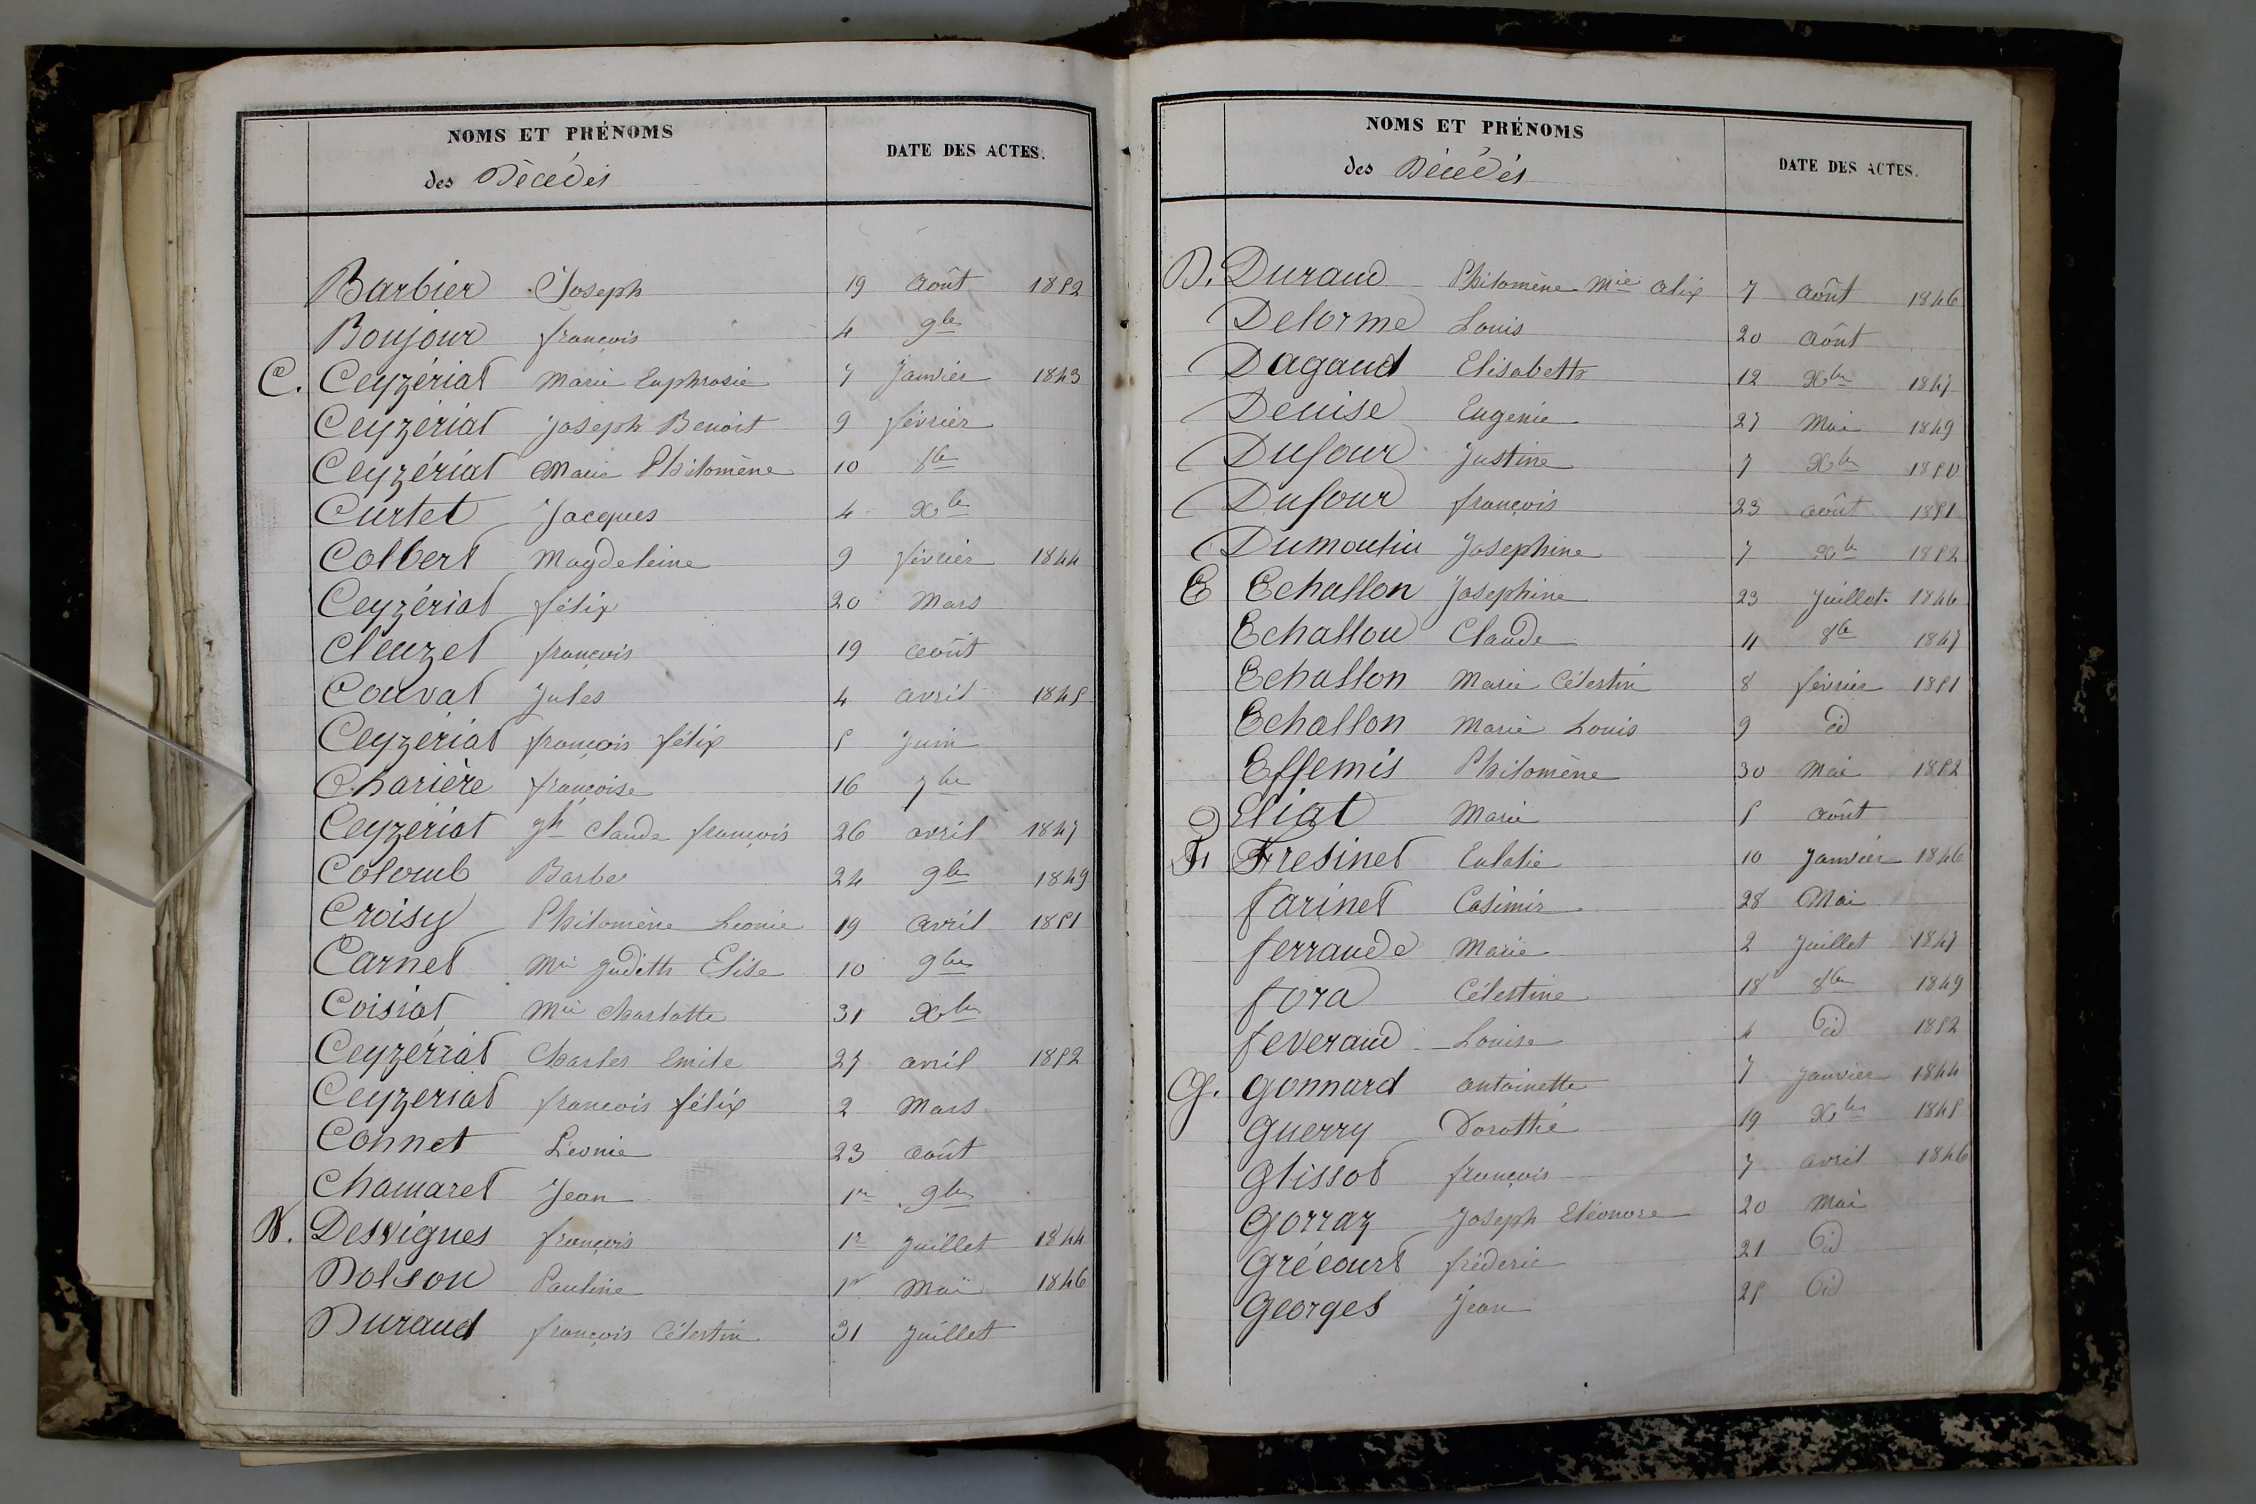 NOMS ET PRÉNOMS
des Décédés
DATE DES ACTES.
Barbier Joseph 19 Août 1852
Boujour françois 4 9bre
C. Ceyzériat Marie Euphrosie 7 Janvier 1843
Ceyzériat Joseph Benoit 9 février
Ceyzériat Marie Philomène 10 8bre
Curtet Jacques 4 Xbre
Colbert Magdeleine 9 février 1844
Ceyzériat félix 20 Mars
Cleuzet françois 19 Août
Couvat Jules 4 avril 1845
Ceyzériat françois félix 5 Juin
Charière françoise 16 7bre
Ceyzériat jh Claude françois 26 avril 1847
Colomb Barbe 24 9bre 1849
Croisy Philomène Leonie 19 avril 1851
Carnet Mie Judith Elise 10 9bre
Coisiat Mie Charlotte 31 Xbre
Ceyzériat Charles Emile 27 avril 1852
Ceyzeriat françois félix 2 Mars
Connet Léonie 23 août
Chamaret Jean 1er 9bre
D. Desvignes françois 1er Juillet 1844
Dolson Pauline 1er Mai 1846
Duraud françois Célestin 31 Juillet
NOMS ET PRÉNOMS
des Décédés
DATE DES ACTES.
D. Duraud Philomène Mie Alix 7 Août 1846
Delorme Louis 20 Août
Dagaud Elisabeth 12 Xbre 1847
Denise Eugenie 27 Mai 1849
Dufour Justine 7 Xbre 1850
Dufour françois 23 août 1851
Dumoulin Josephine 7 Xbre 1852
E Echallon Josephine 23 Juillet 1846
Echallon Claude 11 8bre 1847
Echallon Marie Célestin 8 février 1851
Echallon Marie Louis 9 id
Effemis Philomène 30 Mai 1852
Eliat Marie 5 Août
F Fresinet Eulalie 10 Janvier 1846
farinet Casimir 28 Mai
ferraude Marie 2 Juillet 1847
fora Célestine 18 8bre 1849
feveraud Louise 4 id 1852
G. Gonnard antoinette 7 Janvier 1844
Guerry Dorothé 19 Xbre 1845
Glissot françois 7 avril 1846
Gorraz Joseph Eléonore 20 Mai
Grécourt fréderic 21 id
Georges Jean 25 id